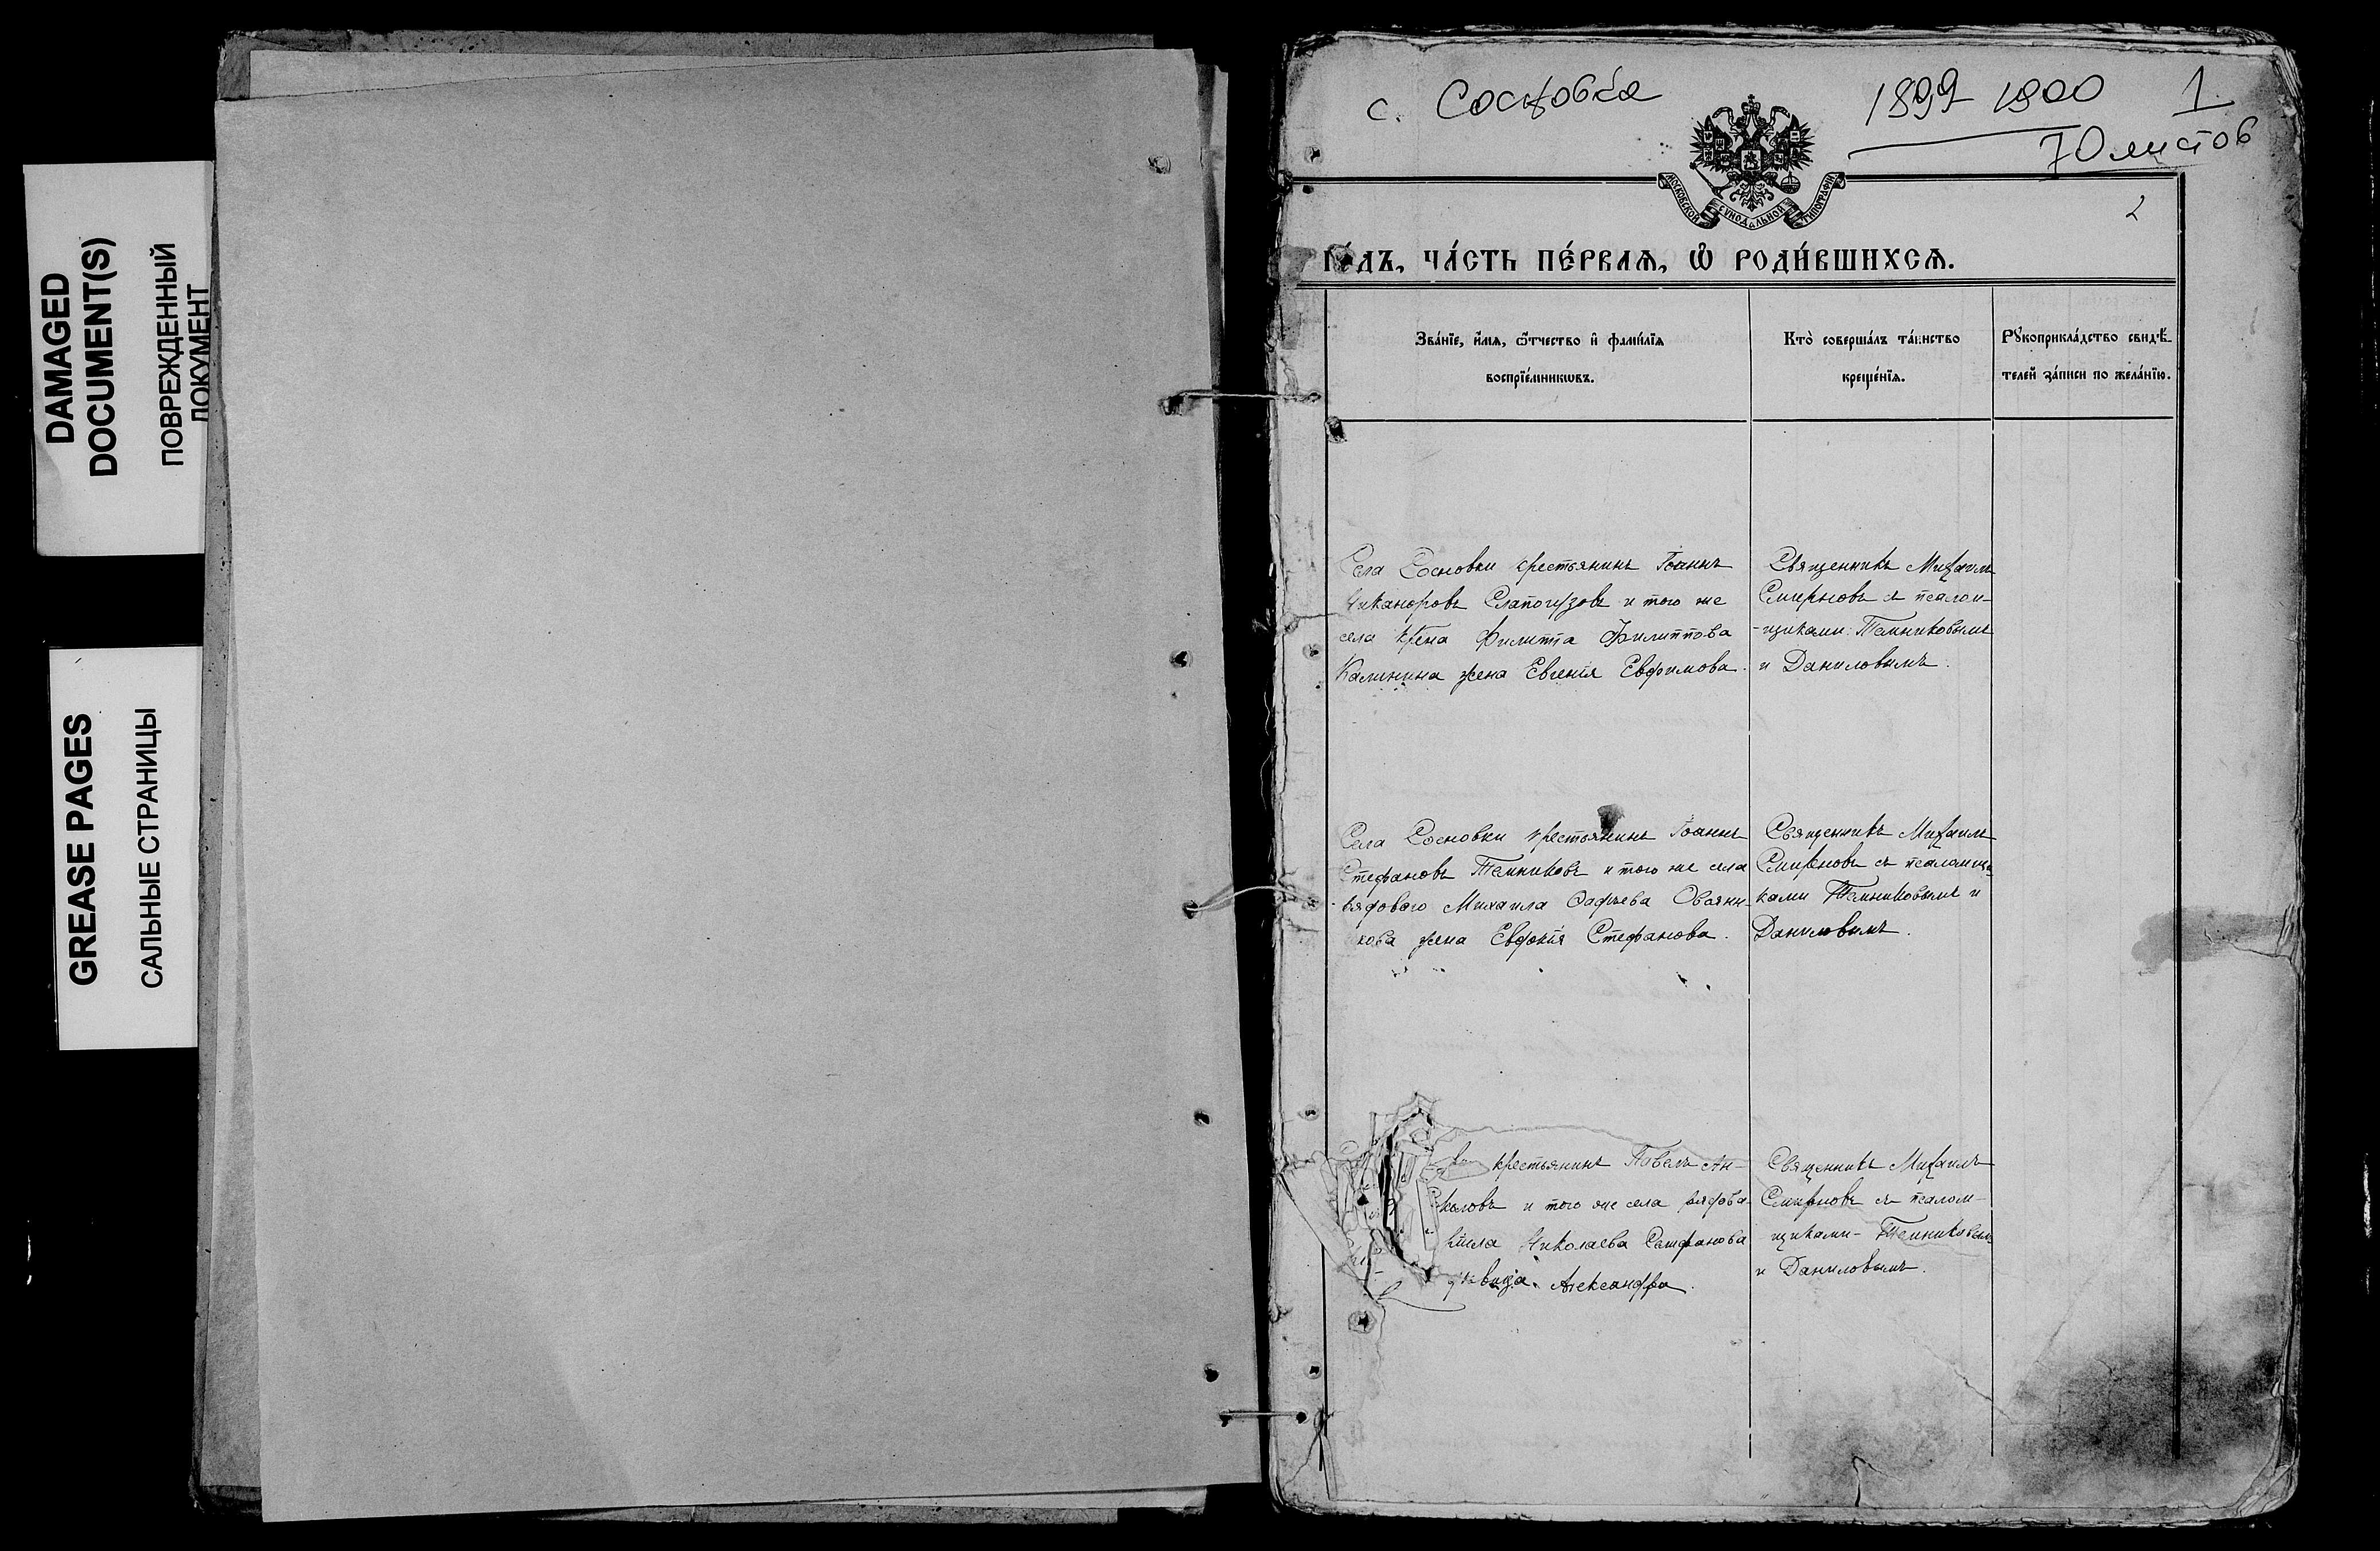 DAMAGED
DOCUMENT(S)
ПОВРЕЖДЕННЫЙ
ДОКУМЕНТ
GREASE PAGES
САЛЬНЫЕ СТРАНИЦЫ
с. Сосновка 1899 1900 1
70 листов
МОСКОВСКОЙ СѴНОДАЛЬНОЙ ТИПОГРАФІИ
2
го́дъ, ча́сть пе́рваѧ, ѡ҆ роди́вшихсѧ.
Зва́нїе, и҆́мѧ, ѻ҆́тчество и҆ фами́лїѧ
воспрїе́мникѡвъ.
Кто̀ соверша́лъ та́инство
креще́нїѧ.
Рꙋкоприкла́дство свидѣ́-
телей за́писи по жела́нїю.
Села Сосновки крестьянинъ Іоаннъ
Никаноровъ и того же
села Филиппа Филиппова
Калинина жена Евгенія Евфимова.
Священникъ Михаилъ
Смирновъ съ псалом-
-щиками: Темниковымъ
и Даниловымъ.
Села Сосновки крестьянинъ Іоаннъ
Стефановъ Темниковъ и того же села
рядового Михаила
жена Стефанова.
Священникъ Михаилъ
Смирновъ съ псаломщи-
ками Темниковымъ и
Даниловымъ.
крестьянинъ Павелъ
и того же села
Николаева
Александра.
Священникъ Михаилъ
Смирновъ съ псалом-
щиками- Темниковымъ
и Даниловымъ.